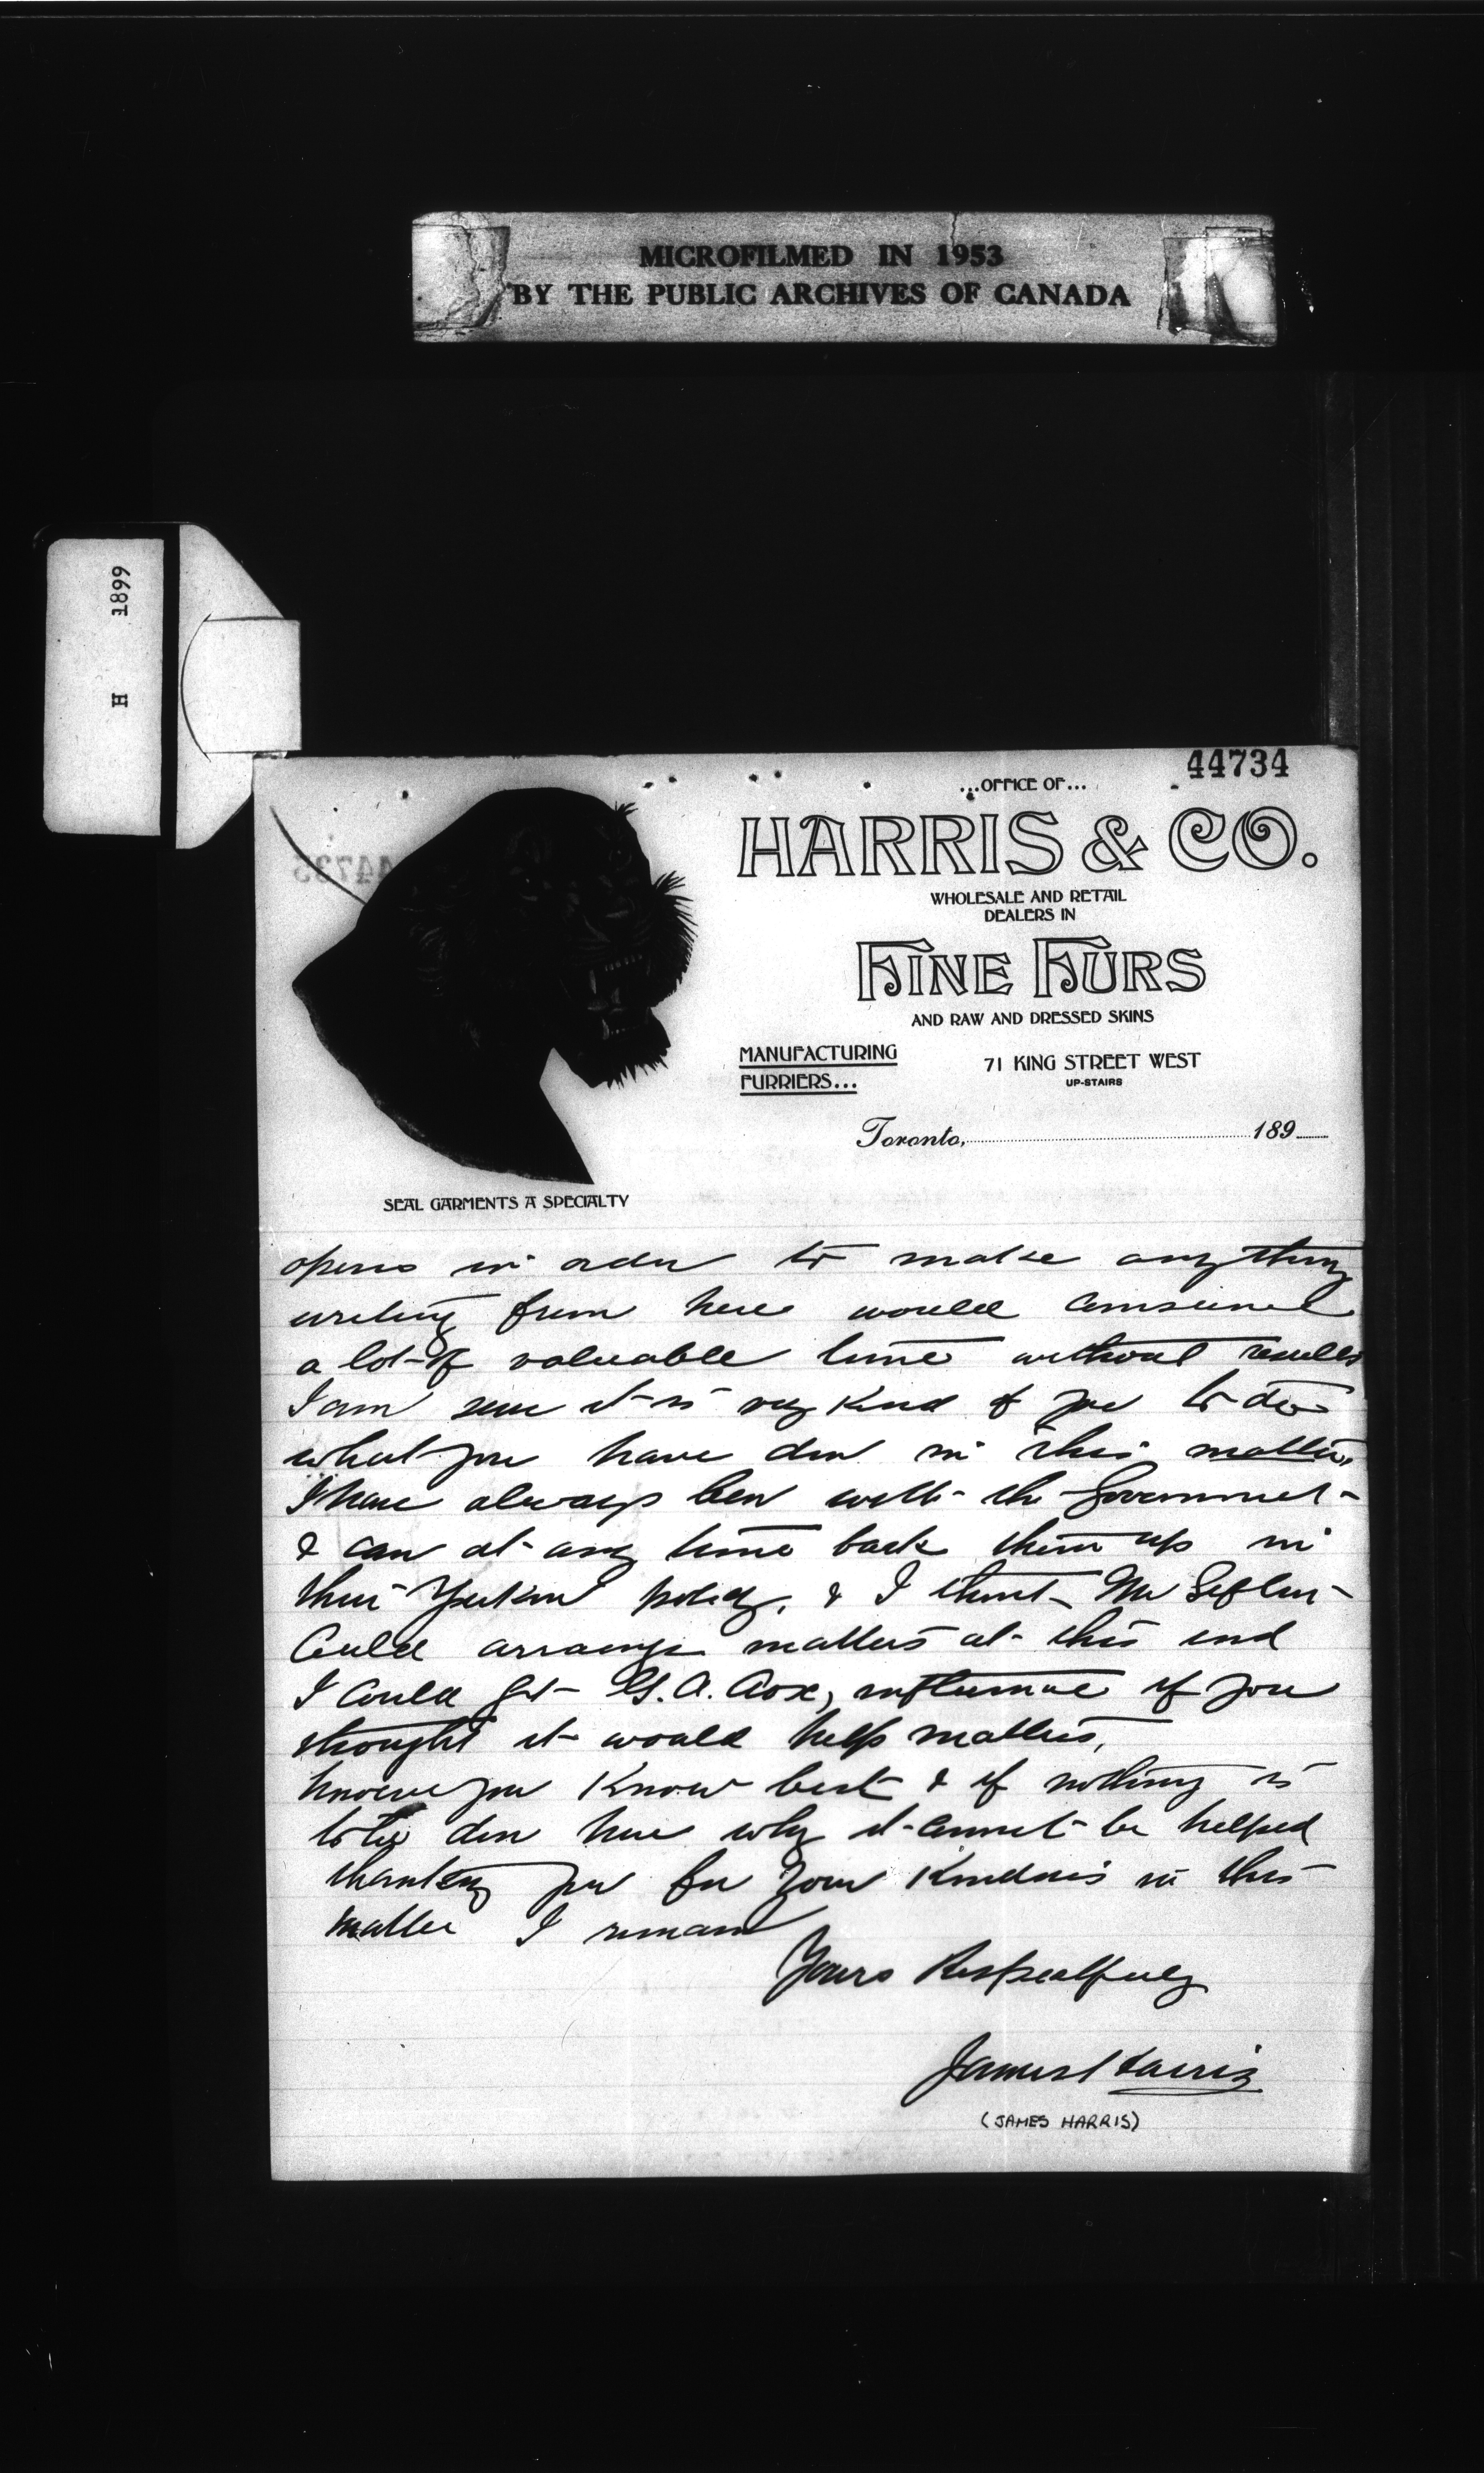 MICROFILMED IN 1953
BY THE PUBLIC ARCHIVES OF CANADA
H 1899
44734
...OFFICE OF...
HARRIS & CO.
WHOLESALE AND RETAIL
DEALERS IN
FINE FURS
AND RAW AND DRESSED SKINS
MANUFACTURING
FURRIERS...
71 KING STREET WEST
UP-STAIRS
Toronto, 189
SEAL GARMENTS A SPECIALTY
opens in order to make anything
writing from here would consume
a lot of valuable time without results
I am sure it is very kind of you to do
what you have don in this matter,
I have always been with the Government
& can at any time back them up in
their Yukon policy, & I think Mr
Could arrange matters at this end
I could get G. A. Cox, influence if you
thought it would help matters,
however you know best & if nothing is
to be don here why it cannot be helped
thanking you for your kindness in this
matter I remain
Yours Respectfully
James Harris
(JAMES HARRIS)